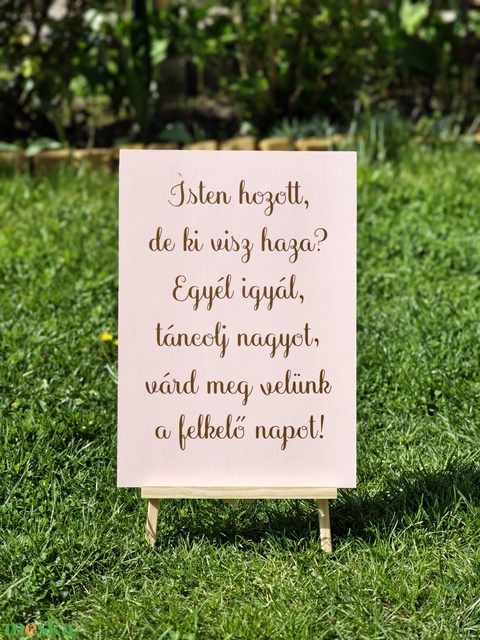 Isten hozott,
de ki visz haza?
Egyél igyál,
táncolj nagyot,
várd meg velünk
a felkelő napot!
meska